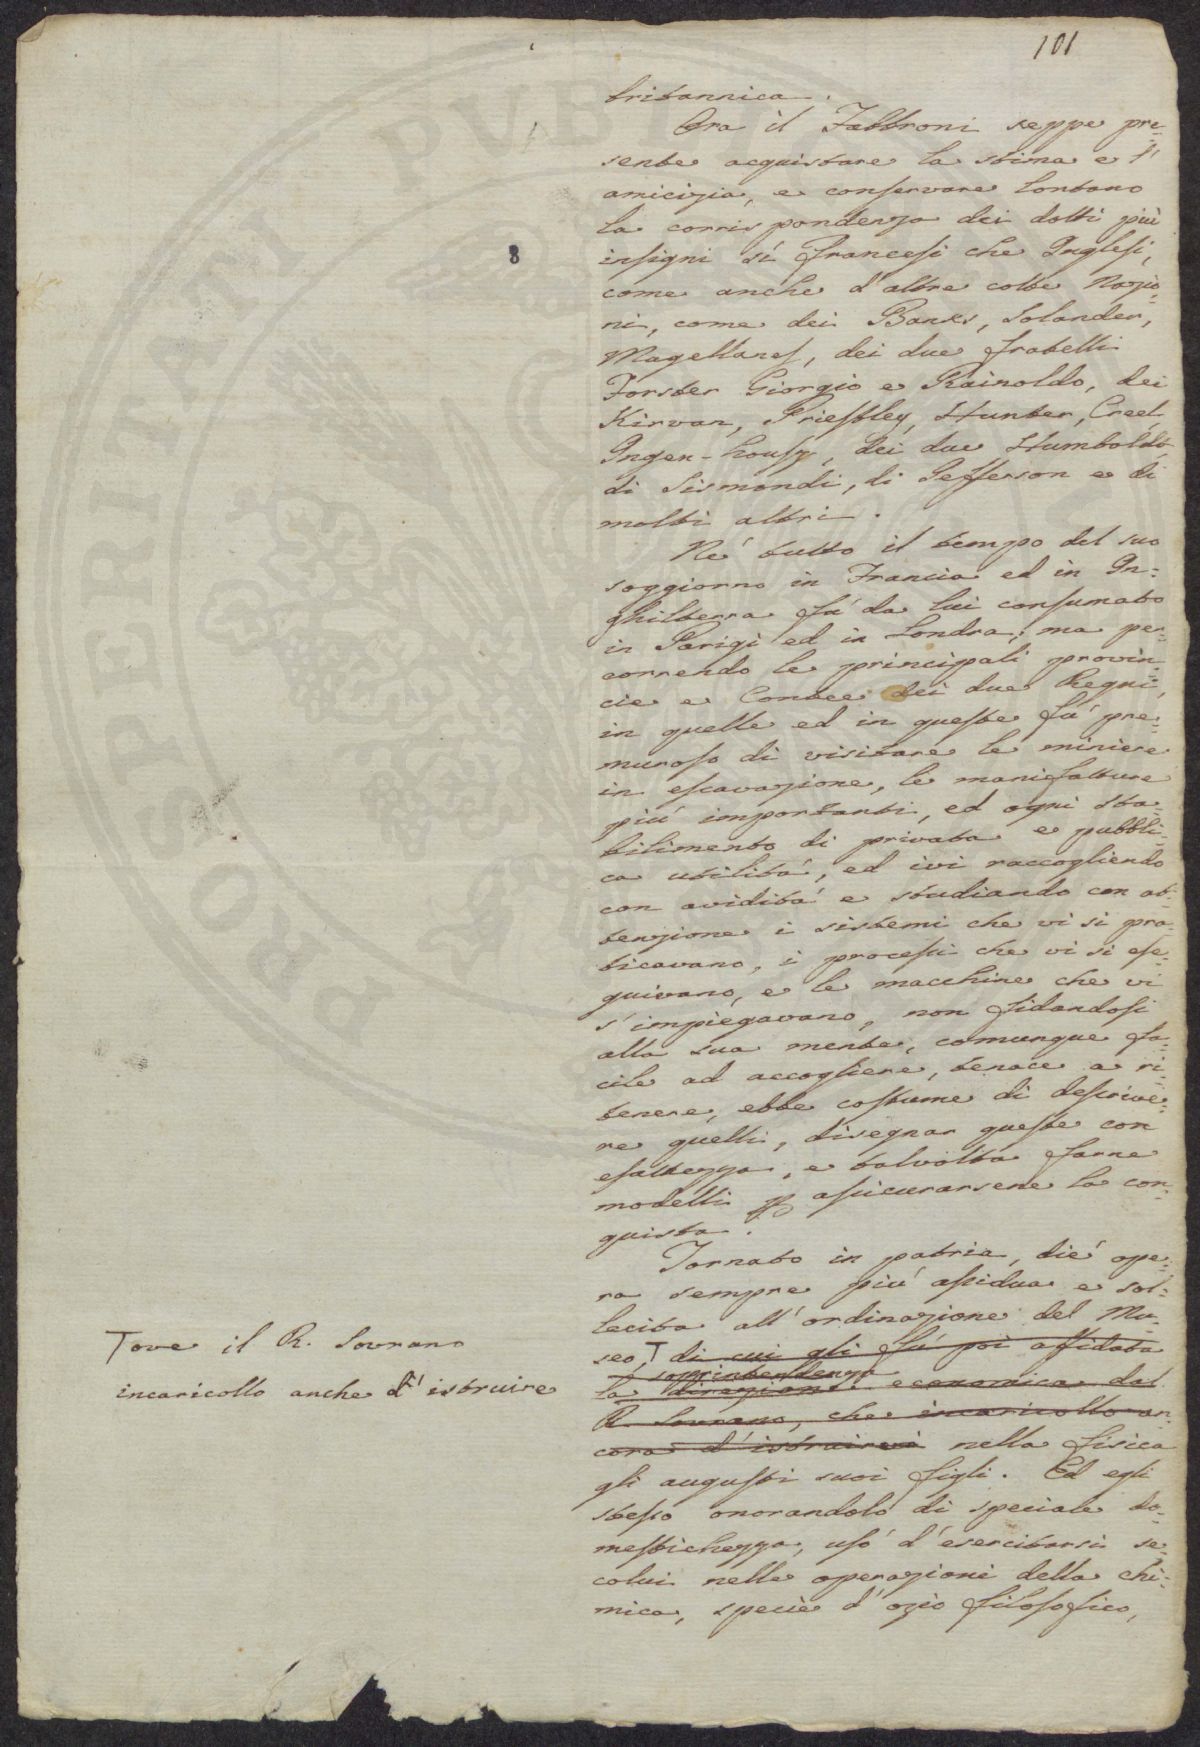 101
britannica.
Ora il Fabbroni seppe pre=
sente acquistare la stima e l'
amicizia, e conservare lontano
la corrispondenza dei dotti più
8
insigni sì francesi che Inglesi,
come anche d'altre colte Nazio=
ni, come dei Banks, Solander,
Magellanes, dei due fratelli
Forster Giorgio e Rainoldo, dei
Kirvan, Priestley, Hunter, Creel,
Ingen-housz, dei due Humboldt,
di Sismondi, di Jefferson e di
molti altri.
Né tutto il tempo del suo
soggiorno in Francia ed in In=
ghilterra fù da lui consumato
in Parigi ed in Londra; ma per=
correndo le principali provin=
cie e Contee dei due Regni,
in quelle ed in queste fù pre=
muroso di visitare le miniere
in escavazione, le manifatture
più importanti, ed ogni sta=
bilimento di privata e pubbli=
ca utilità, ed ivi raccogliendo
con avidità e studiando con at=
tenzione i sistemi che vi si pra=
ticavano, i processi che vi si ese=
guivano, e le macchine che vi
s'impiegavano, non fidandosi
alla sua mente, comunque fa=
cile ad accogliere, tenace a ri=
tenere, ebbe costume di descrive=
re quelli, disegnar queste con
esattezza, e talvolta farne
modelli p assicurarsene la con=
quista.
Tornato in patria, diè ope=
ra sempre più assidua e sol=
lecita all'ordinazione del Mu=
seo, T di cui gli fù poi affidata
soprintendenza
la direzione economica dal
R. Sovrano, che incaricollo an=
cora d'istruirvi nella fisica
T ove il R. Sovrano
incaricollo anche d'istruire
gli augusti suoi figli. Ed egli
stesso onorandolo di speciale do=
mestichezza, usò d'esercitarsi se=
colui nelle operazioni della chi=
mica, specie d'ozio filosofico,